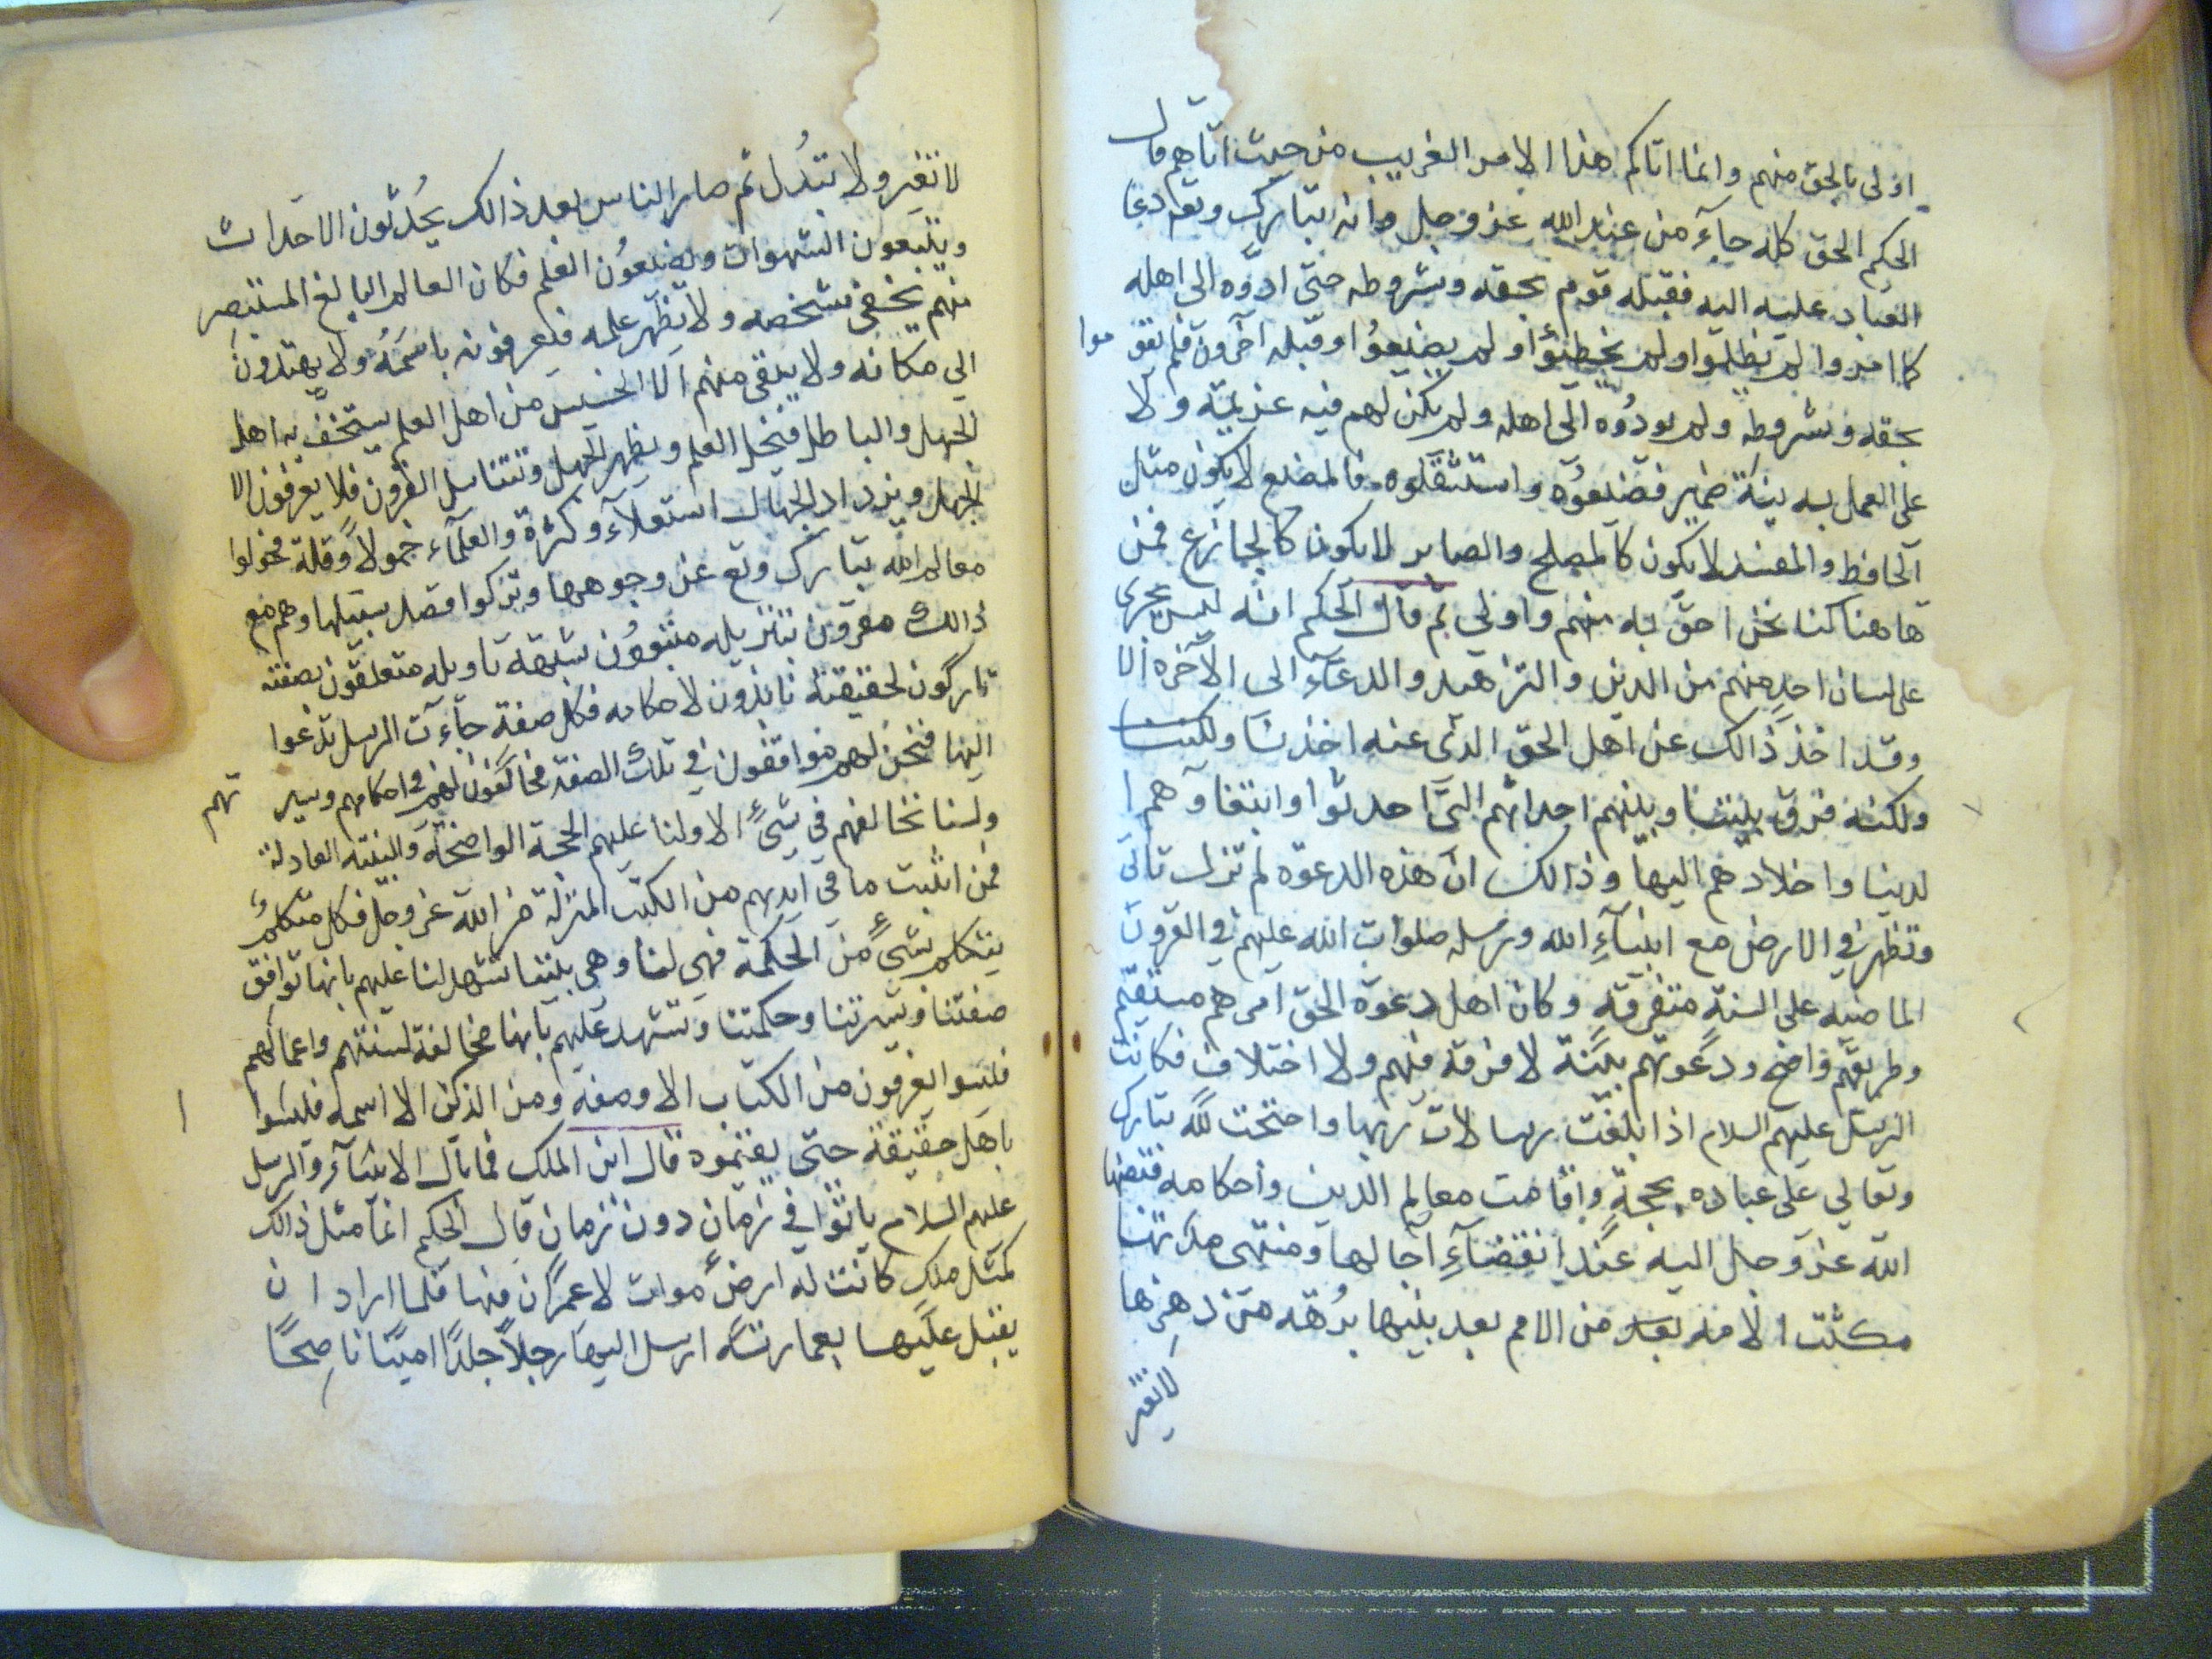 اولى بالحق منهم وانما اتاكم هذا الامر الغريب من حيث اتاهم قال
الحكيم الحق كله جآء من عند الله عز وجل وانه تبارك وتع دعا
العباد عليه اليه فقبله قوم بحقه وشروطه حتى ادوه الى اهله
كما امروا لم يظلموا ولم يخطئوا ولم يضيعوا وقبله آخرون فلم يقوموا
بحقه وشروطه ولم يودوه الى اهله ولم يكن لهم فيه عزيمة ولا
على العمل به بنية ضمير فضيعوه واستثقلوه فالمضيع لا يكون مثل
الحافظ والمفسد لا يكون كالمصلح والصابر لا يكون كالجازع فمن
هاهنا كنا نحن احق به منهم واولى ثم قال الحكيم انه ليس يجرى
على لسان احد منهم من الدين والتزهيد والدعآء الى الآخرة الا
وقد اخذ ذالك عن اهل الحق الذى عنه اخذنا ولكننا
ولكنه فرق بيننا وبينهم احداثهم التي احدثوا وابتغآوهم ا
لدنيا واخلادهم اليها وذالك ان هذه الدعوة لم تزل تاتى
وتظهر في الارض مع انبيآء الله ورسله صلوات الله عليهم في القرون
الماضيه على السنة متفرقه وكان اهل دعوة الحق امرهم مستقيم
وطريقهم واضح ودعوتهم بينة لا فرقة فيهم ولا اختلاف فكانت
الرسل عليهم السلام اذا بلغت رسالات ربها واحتجت لله تبارك
وتعالى على عباده بحجة واقامت معالم الدين واحكامه قبضها
الله عز وجل اليه عند انقضآء آجالها ومنتهى مدتها
مكثت الامه بعد من الامم بعد بينها برهة من دهرها
لاتغير
لاتغير ولا تبدل ثم صار الناس بعد ذالك يحدثون الاحداث
ويتبعون الشهوات ويضيعون العلم فكان العالم البالغ المستبصر
منهم يخفى شخصه ولا يظهر علمه فيعرفونه باسمه ولا يهتدون
الى مكانه ولا يبقى منهم الا الخسيس من اهل العلم يستخف به اهل
الجهل والباطل فيخمل العلم ويظهر الجهل وتتناسل القرون فلا يعرفون الا
الجهل ويزداد الجهال استعلآء وكثرة والعلمآء خمولا وقلة فحولوا
معالم الله تبارك وتع عن وجوهها وتركوا قصد سبيلها وهم مع
ذالك مقرون بتنزيله متبعون شبهة تاويله متعلقون بصفته
تاركون لحقيقته نابذون لاحكامه فكل صفة جآءت الرسل تدعوا
اليها فنحن لهم موافقون في تلك الصفة مخالفون لهم في احكامهم وسيرتهم
ولسنا نخالفهم في شىء الا ولنا عليهم الحجة الواضحة والبينة العادلة
فمن اثبت ما في ايديهم من الكتب المنزلة من الله عز وجل فكل متكلم
يتكلم بشىء من الحكمة فهى لنا وهى بيننا تشهد لنا عليهم بانها توافق
صفتنا وسيرتنا وحكمتنا وتشهد عليهم بانها مخالفة لسنتهم واعمالهم
فليسوا يعرفون من الكتاب الا وصفه ومن الذكر الا اسمه فليسوا
باهل حقيقة حتى يقيموه قال ابن الملك فما بال الانبيآء والرسل
عليهم السلام ياتوا في زمان دون زمان قال الحكيم انما مثل ذالك
كمثل ملك كانت له ارض موات لا عمران فيها فلما اراد ان
يقبل عليها بعمارته ارسل اليها رجلا جلدا امينا ناصحا